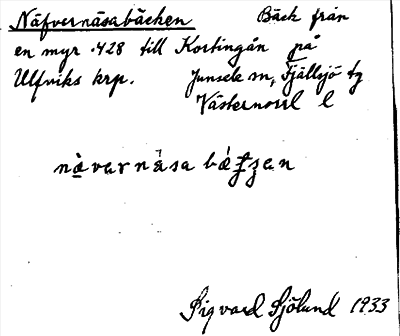 Näfvernäsabäcken Bäck från
en myr .428 till Kortingån på
Ulfviks krp. Junsele sn, Fjällsjö tg
Västernorrl l
nä̀varnä́sa bä́ʈʂen
Sigvard Sjölund 1933